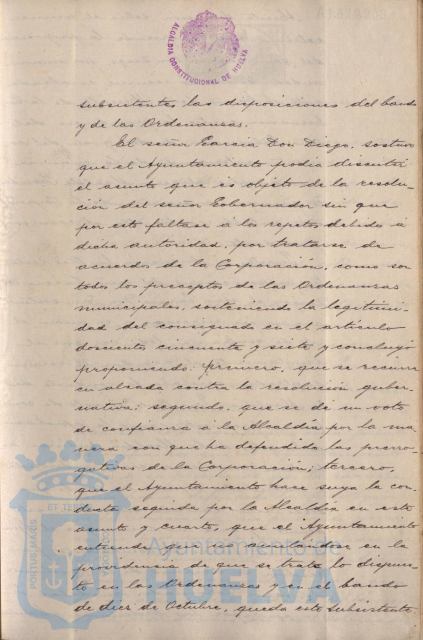 ALCALDIA CONSTITUCIONAL DE HUELVA
subsistentes las disposiciones del bando
y de las Ordenanzas.
El señor García Don Diego, sostuvo
que el Ayuntamiento podía discutir
el asunto que es objeto de la resolu-
ción del señor Gobernador sin que
por esto faltase á los respetos debidos á
dicha autoridad, por tratarse de
acuerdos de la Corporación, como son
todos los preceptos de las Ordenanzas
municipales, sosteniendo la legitimi-
dad del consignado en el artículo
doscientos cincuenta y siete y concluyó
proponiendo: primero, que se recurra
en alzada contra la resolución guber-
nativa; segundo, que se dé un voto
de confianza á la Alcaldía por la ma
nera con que ha defendido las prerro-
gativas de la Corporación; tercero,
que el Ayuntamiento hace suya la con-
ducta seguida por la Alcaldía en este
asunto y cuarto, que el Ayuntamiento
entiende que anulandose en la
providencia de que se trata lo dispues-
to en las Ordenanzas y en el bando
de diez de Octubre, queda este subsistente
Ayuntamiento de
HUELVA